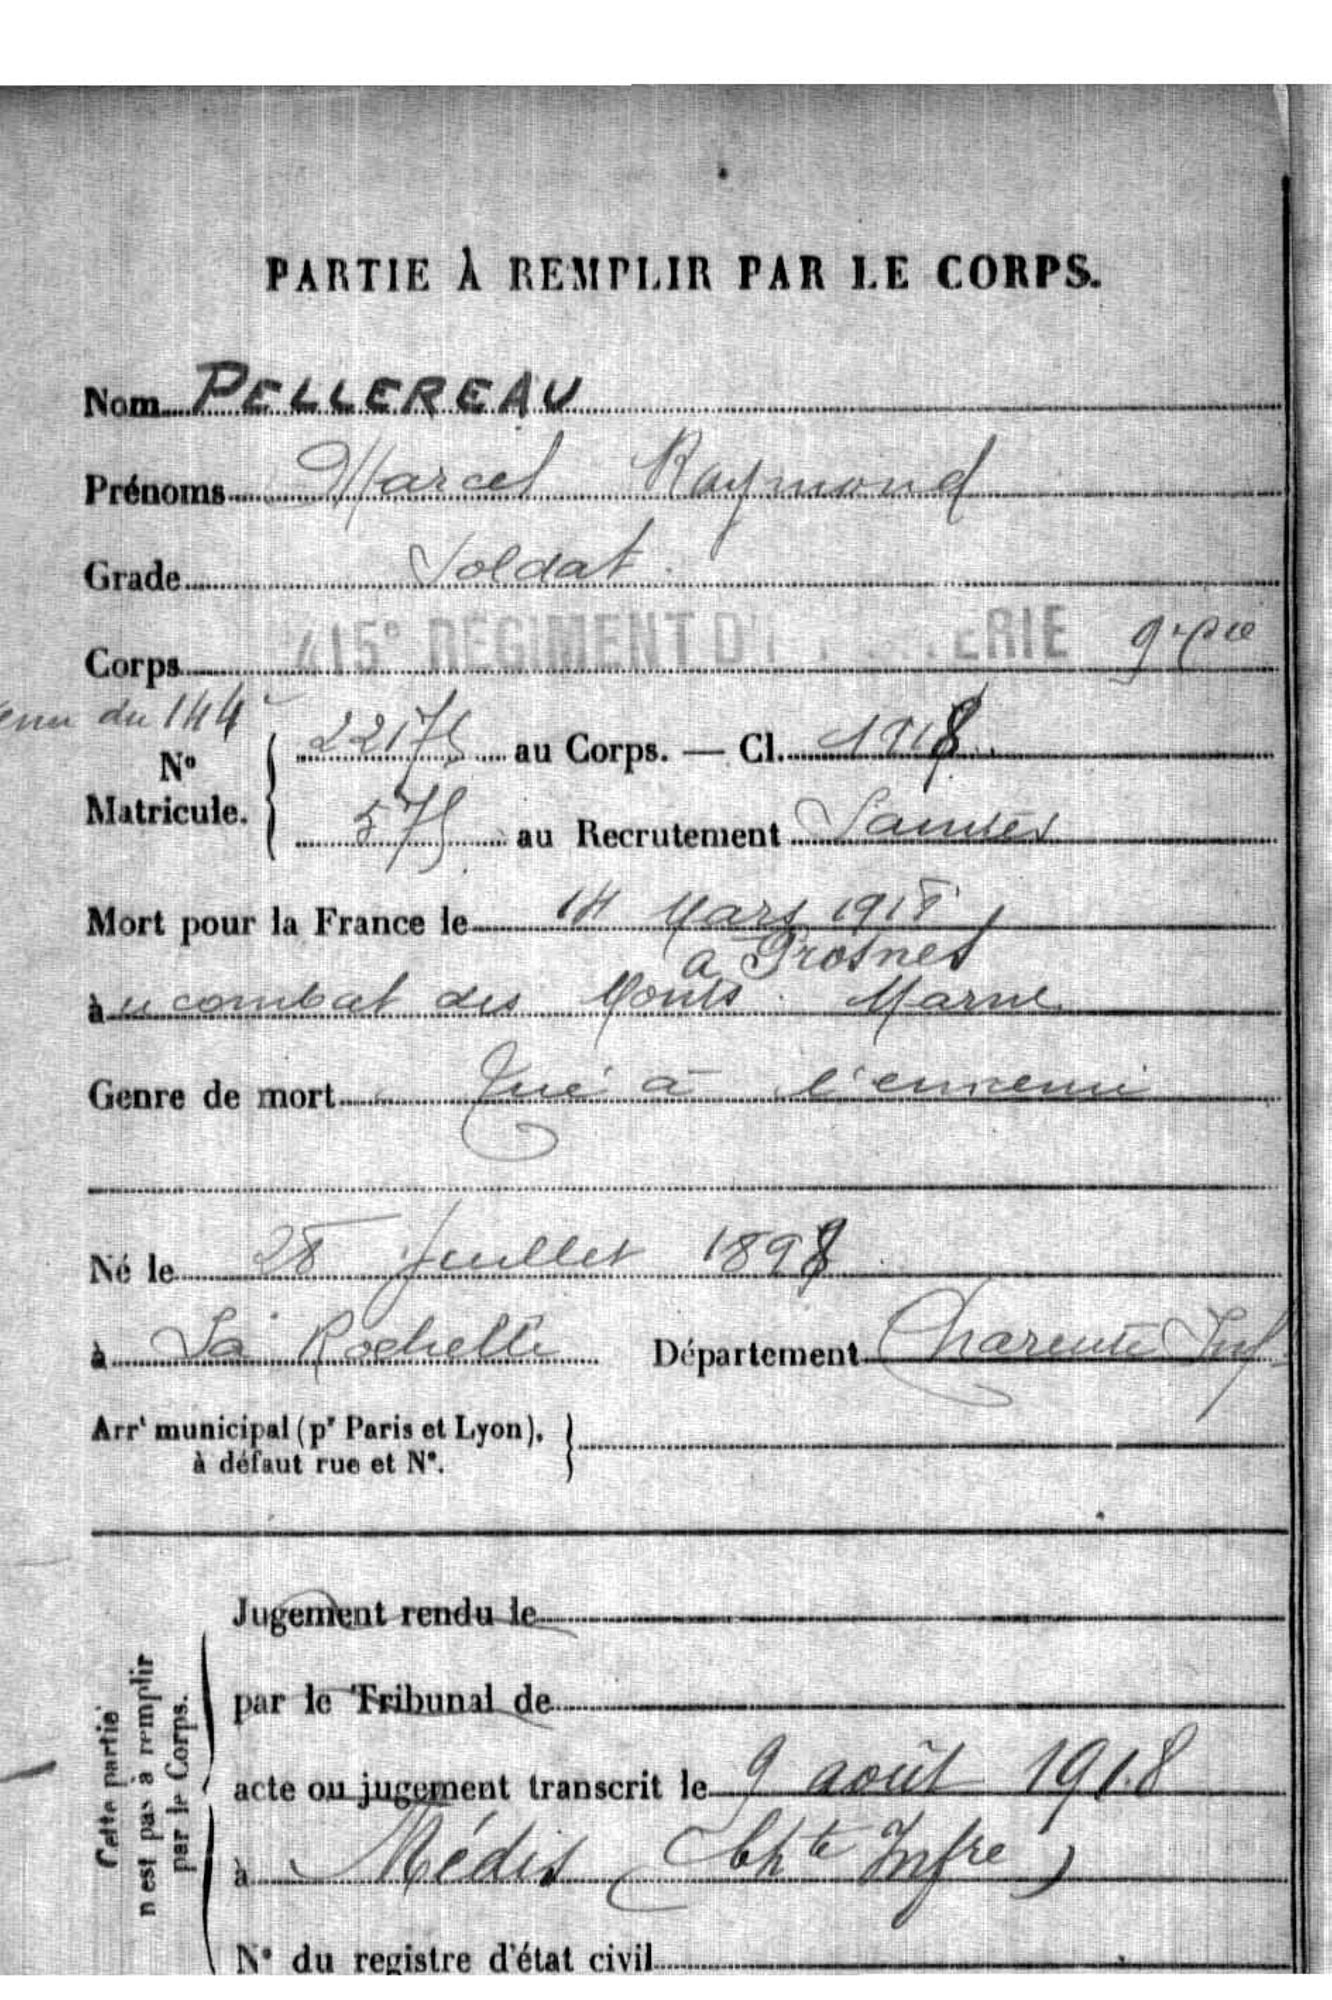 PARTIE À REMPLIR PAR LE CORPS.
Nom PELLEREAU
Prénoms Marcel Raymond
Grade Soldat.
Corps 415e RÉGIMENT D' ERIE 9e Cie
du 144e
No Matricule. { 22175 au Corps. — Cl. 1918
575 au Recrutement Saintes
Mort pour la France le 14 Mars 1918
a Prosnes
àu combat des Monts Marne
Genre de mort Tué à l'ennemi
Né le 28 Juillet 1898
à La Rochelle Département Charente Inf
Arrt municipal (pr Paris et Lyon), }
à défaut rue et N°.
Cette partie n'est pas à remplir par le Corps.
Jugement rendu le
par le Tribunal de
acte ou jugement transcrit le 9 août 1918
à Médis (Chte Infre)
N° du registre d'état civil